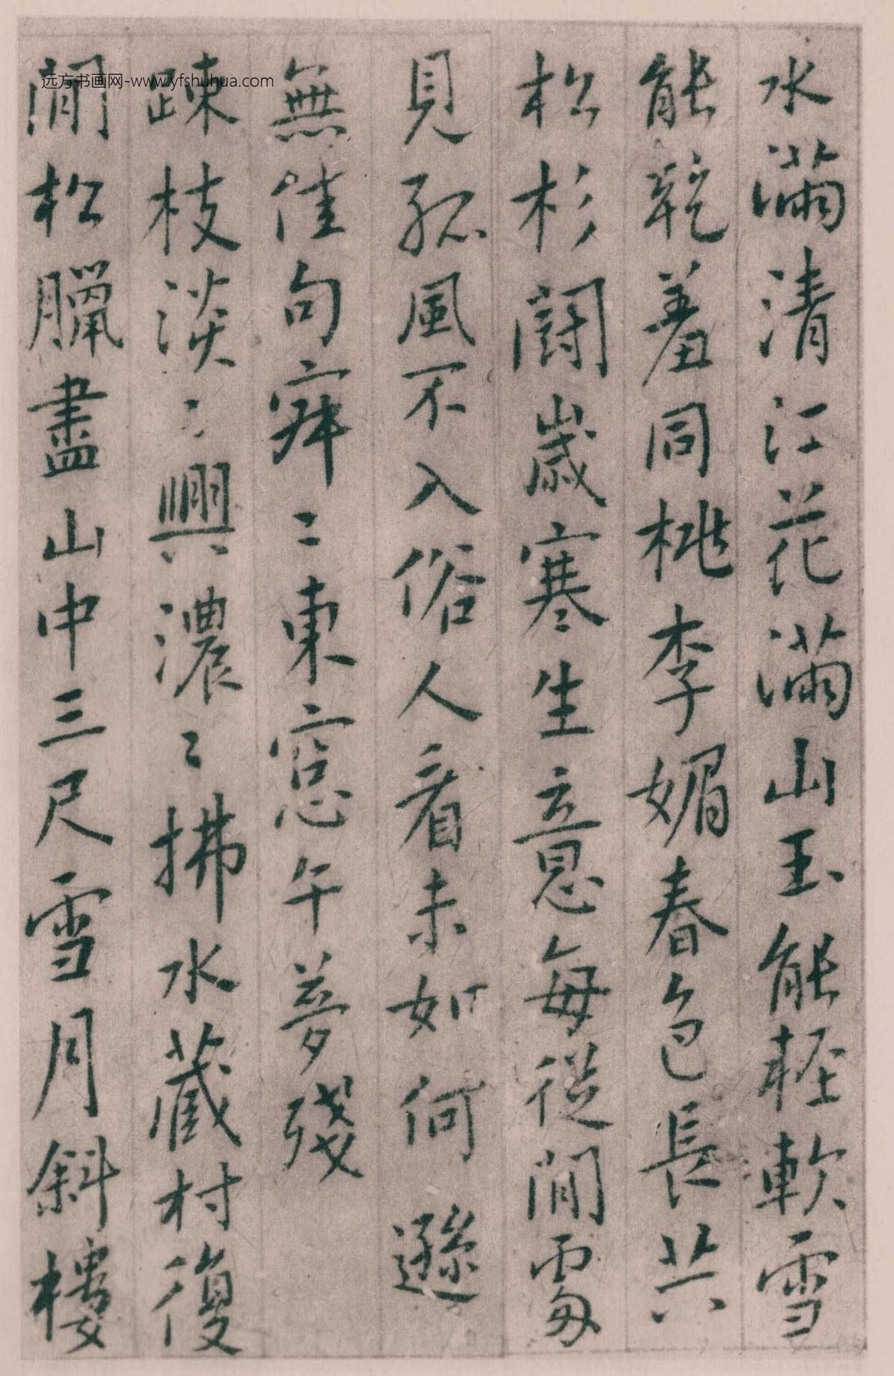 远方书画网-www.yfshuhua.com
水滿清江花滿山玉能輕軟雪
能乾羞同桃李媚春色長共
松杉鬪歲寒生意每從閒處
見孤風不入俗人看未如何遜
無佳句寐〻東窓午夢殘
疎枝淡〻興濃〻拂水藏村復
間松臘盡山中三尺雪月斜樓